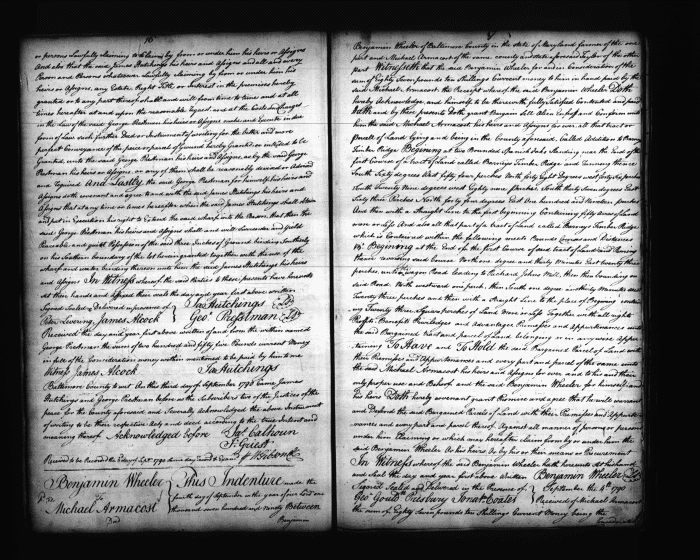 16
or persons Lawfully Claiming or to Claim by from or under him his heirs or Assigns
And also that the said James Hutchings his heirs and Assigns and all and every
Person and Persons whatsoever Lawfully Claiming by from or under him his
heirs or Assigns, any Estate Right Title, or Interest in the premises hereby
granted or to any part thereof shall and will from time to time and at all
times hereafter at and upon the reasonable request and at the Costs and Charges
in the Law of the said George Prestman his heirs or Assigns make and Execute in due
form of Law such further Deed or Instrument of writing for the better and more
perfect Conveyance of the piece or parcel of Ground hereby Granted or intended to be
Granted, unto the said George Prestman his heirs and Assigns, as by the said George
Prestman his heirs or Assigns or any of them shall be reasonably devised or Advised
and required And Lastly the said George Prestman for himself his heirs and
Assigns doth covenant and agree to and with the said James Hutchings his heirs and
Assigns that at any time or times hereafter when the said James Hutchings shall
and put in Execution his right to Extend the said wharf into the Bason that then the
said George Prestman his heirs and Assigns shall and will Surrender and Yield
Peaceable and quiet Possession of the said three Inches of Ground binding
on his Southern boundary of the lot herein granted together with the use of the
wharf and water binding thereon unto him the said James Hutchings his heirs
and Assigns In Witness whereof the said Parties to these presents have hereunto
set their hands and affixed their seals the day and year first above written
Signed Sealed and Delivered in presence of } Jas Hutchings
Peter Levering, James Alcock } Geo: Prestman
Received the day and year first above written of and from the within named
George Prestman the sum of two hundred and fifty two Pounds current Money
in full of the Consideration money within mentioned to be paid by him to me
Witness James Alcock Jas Hutchings
Baltimore County to wit On this third day of September 1790 Came James
Hutchings and George Prestman before us the Subscribers two of the Justices of the
peace for the County aforesaid and Severally acknowledged the above Instrument
of writing to be their respective Act and deed according to the true Intent and
meaning thereof Acknowledged before Jas Calhoun
Received to be Recorded the day of Sept 1790
Benjamin Wheeler
To
Michael Armacost
Deed
This Indenture made the
fourth day of September in the year of our Lord one
thousand seven hundred and ninety Between
Benjamin
Benjamin Wheeler of Baltimore County in the state of Maryland farmer of the one
part and Michael Armacost of the same county and state aforesaid Taylor of the other
part Witnesseth that the said Benjamin Wheeler for and in Consideration of the
sum of Eighty Seven pounds ten Shillings Current money to him in hand paid by the
said Michael Armacost the Receipt whereof he the said Benjamin Wheeler Doth
hereby Acknowledge and himself to be therewith fully Satisfied Contented and paid
Hath and by these presents Doth grant Bargain Sell Alien Enfeof and Confirm unto
him the said Michael Armacost his heirs and Assigns for ever all that tract or
parcell of Land Lying and being in the County aforesaid Called Addition to
Timber Ridge Begining at two Bounded Spanish Oaks Standing near the End of the
first Course of a tract of Land called Timber Ridge and running thence
South sixty degrees West fifty four perches North forty Eight Degrees west forty six perches
South Seventy Nine degrees west Eighty Nine perches South thirty Seven degrees East
Sixty three Perches North forty four degrees East One hundred and Nineteen perches
And then with a Straight Line to the first begining Containing fifty acres of Land
more or Less And also all that part of a tract of Land called Timber Ridge
which is Contained within the following meets Bounds Courses and Distances
Viz: Begining at the End of the first Course of said tract of Land and Running
thence North one degree and thirty Minutes East twenty three
perches unto Wagon Road leading to Richard Johns Mill then the bounding on
said Road North westward one perch, then South one degree and thirty Minutes west
Twenty three perches and then with a Straight Line to the place of Begining
Twenty three Square perches of Land More or Less Together with all right
Rights Benefits Priviledges and Advantages Premises and Appurtenances unto
the said Bargained tract and parcel of Land belonging or in any ways appur
taining To Have and To Hold the said Bargained Parcel of Land with
their Premises and Appurtenances and every part and parcel of the same unto
the said Michael Armacost his heirs and Assigns for ever and to his and their
only proper use and Behoof and the said Benjamin Wheeler for himself and
his heirs Doth hereby covenant grant Promise and agree that he will warrant
and Defend the said Bargained Parcels of Land with their Premises and Appurte
nances and every part and parcel thereof Against all manner of person or persons
under him Claiming or which may hereafter Claim from by or under him the
said Benjamin Wheeler Or his heirs Or by his or their means or Procurement
In Witness whereof he the said Benjamin Wheeler hath hereunto set his hand
and Seal the day and year first above written Benjamin Wheeler
Signed Sealed and Delivered in the Presence of September the 4th 1790
Geo: Gould Presbury Jonat: Coates Received of Michael Armacost
the sum of Eighty Seven pounds ten Shillings Current Money being the